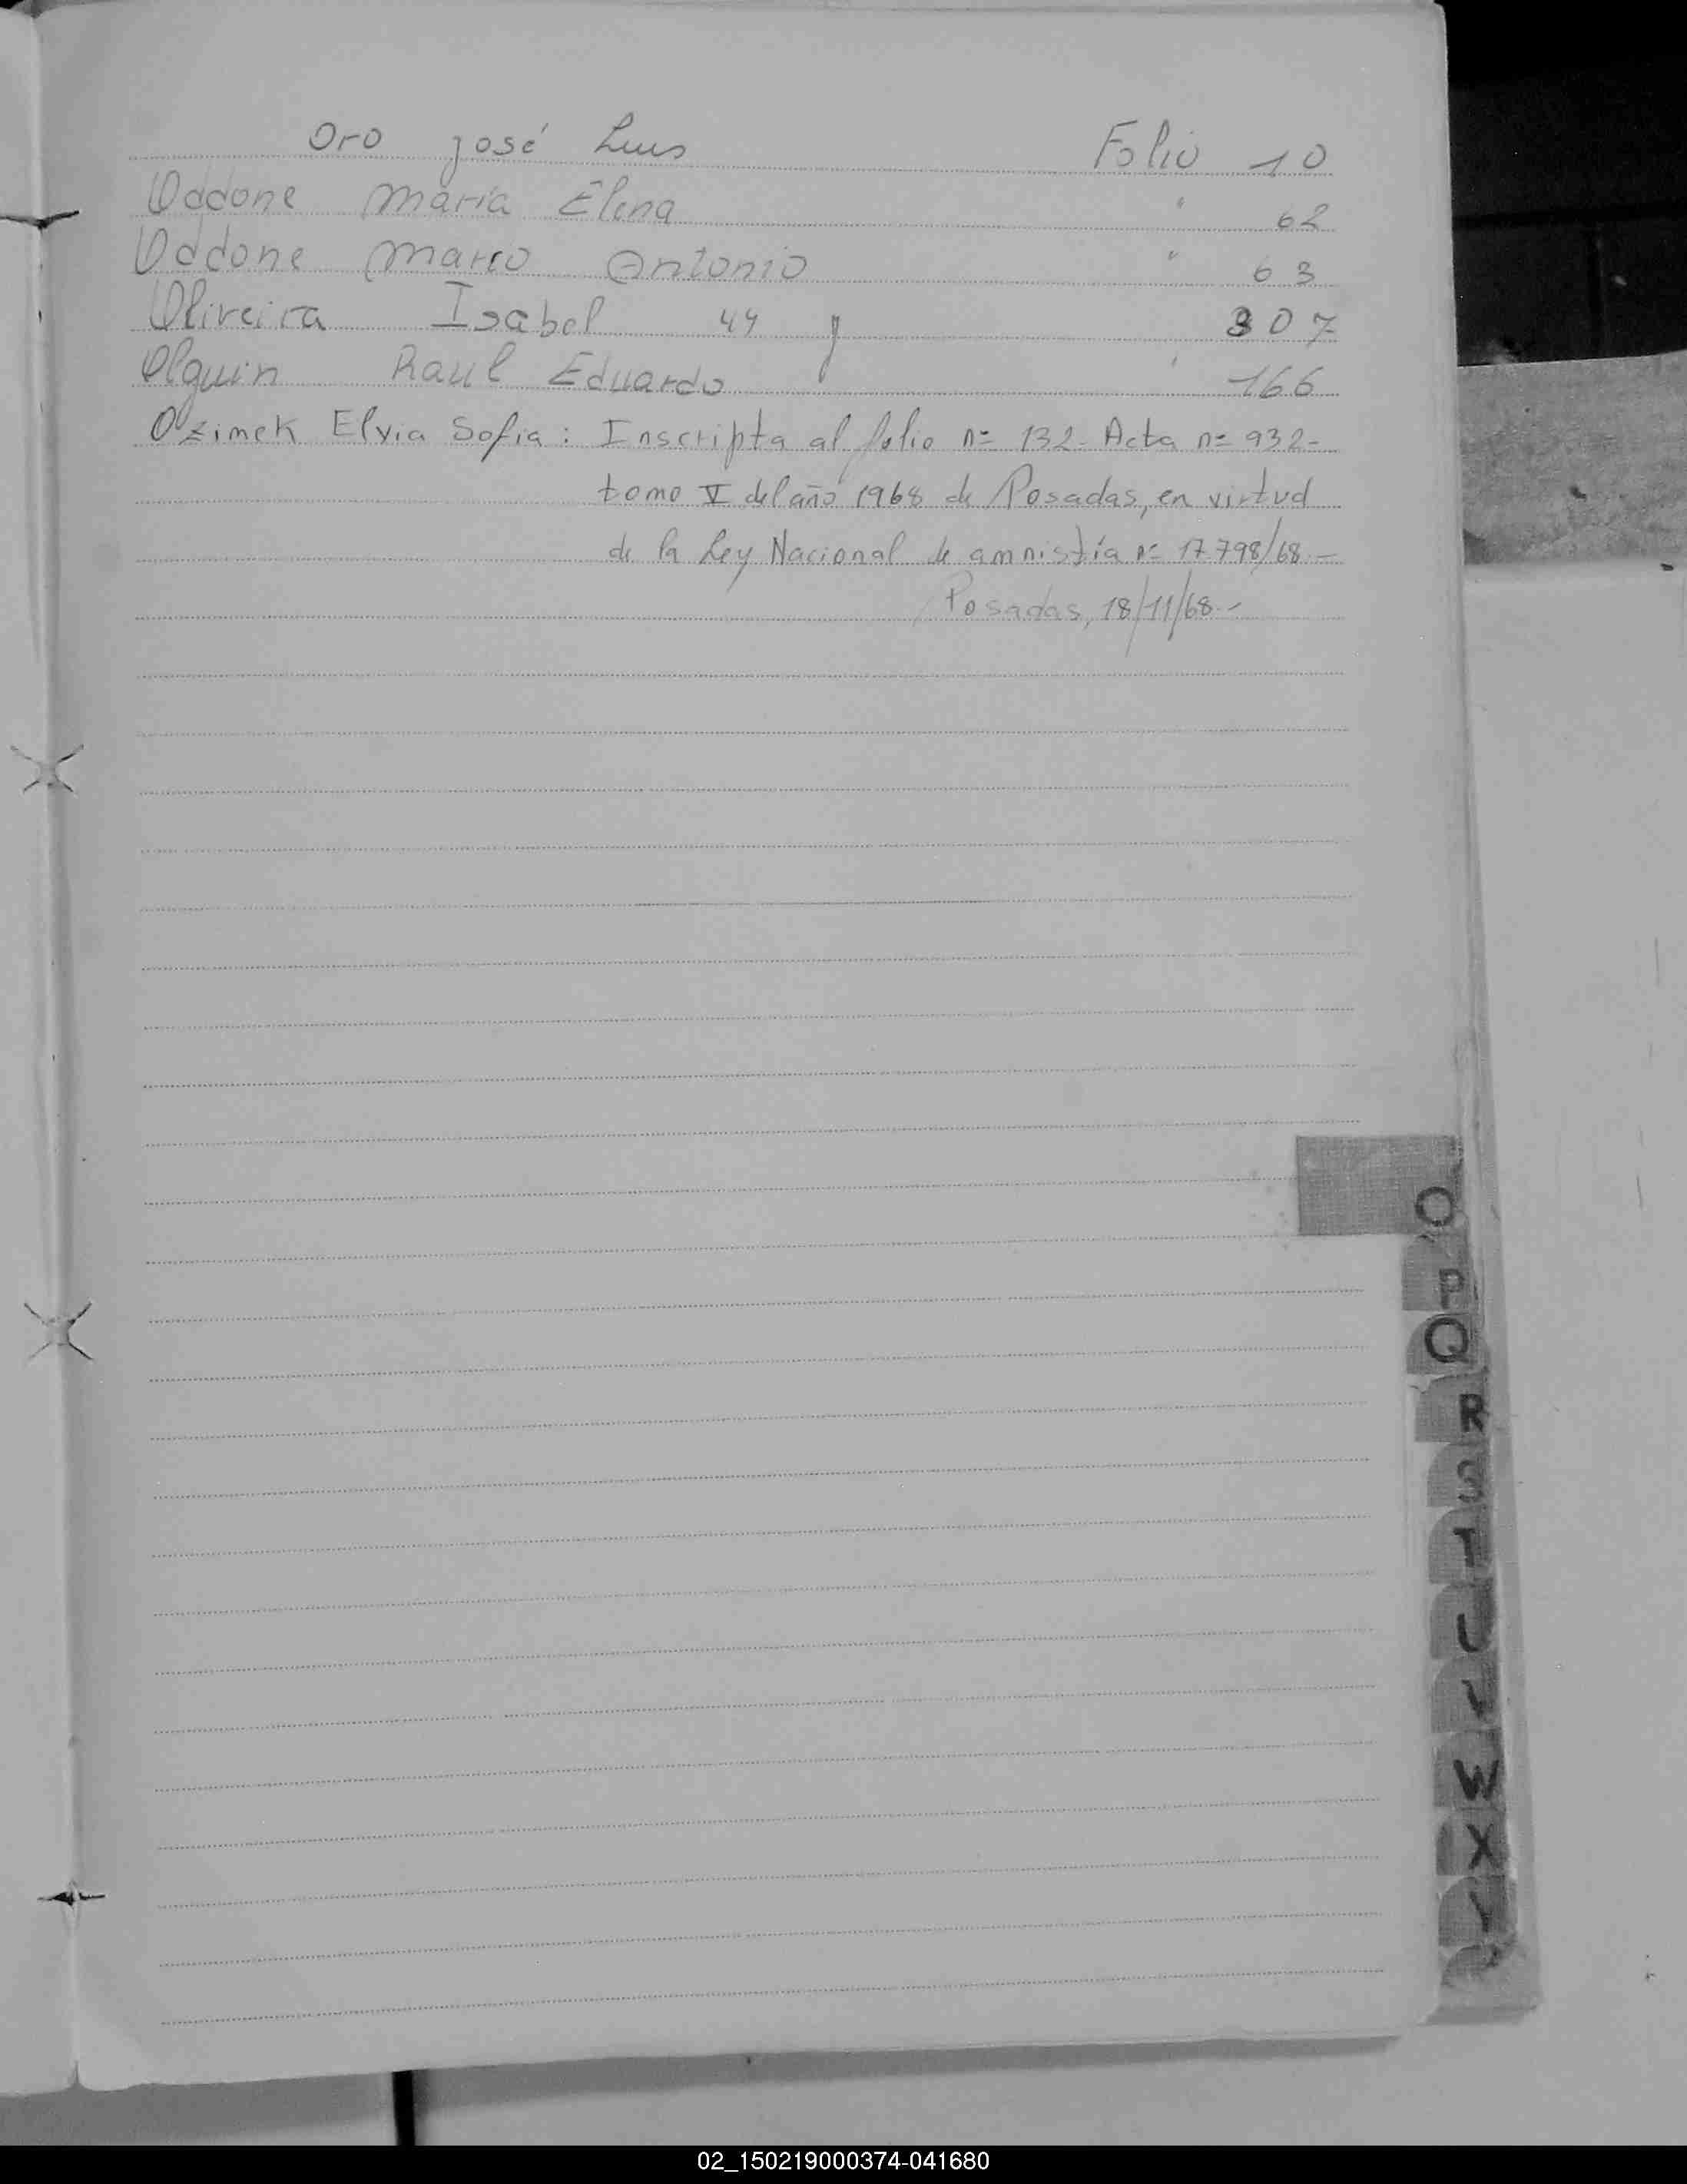 Oro José Luis Folio 10
Oddone Maria Elena " 62
Oddone Marco Antonio " 63
Oliveira Isabel 44 y 307
Olguin Raul Eduardo " 166
Ozimek Elvia Sofia: Inscripta al folio n= 132- Acta n= 932-
tomo V del año 1968 de Posadas, en virtud
de la Ley Nacional de amnistía n= 17.798/68.-
Posadas, 18/11/68.-
O
P
Q
R
S
T
U
V
W
X
Y
02_150219000374-041680